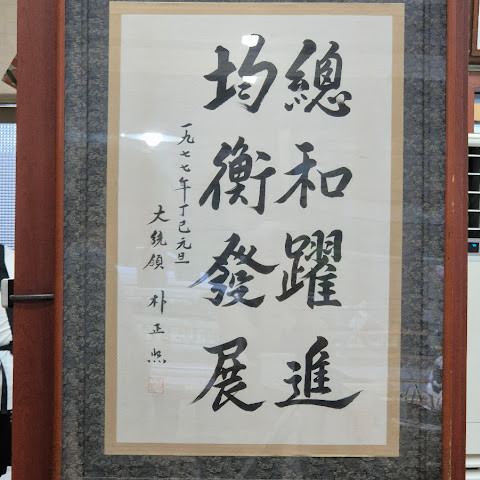 總和躍進
均衡發展
一九七七年丁巳元旦
大統領 朴正熙